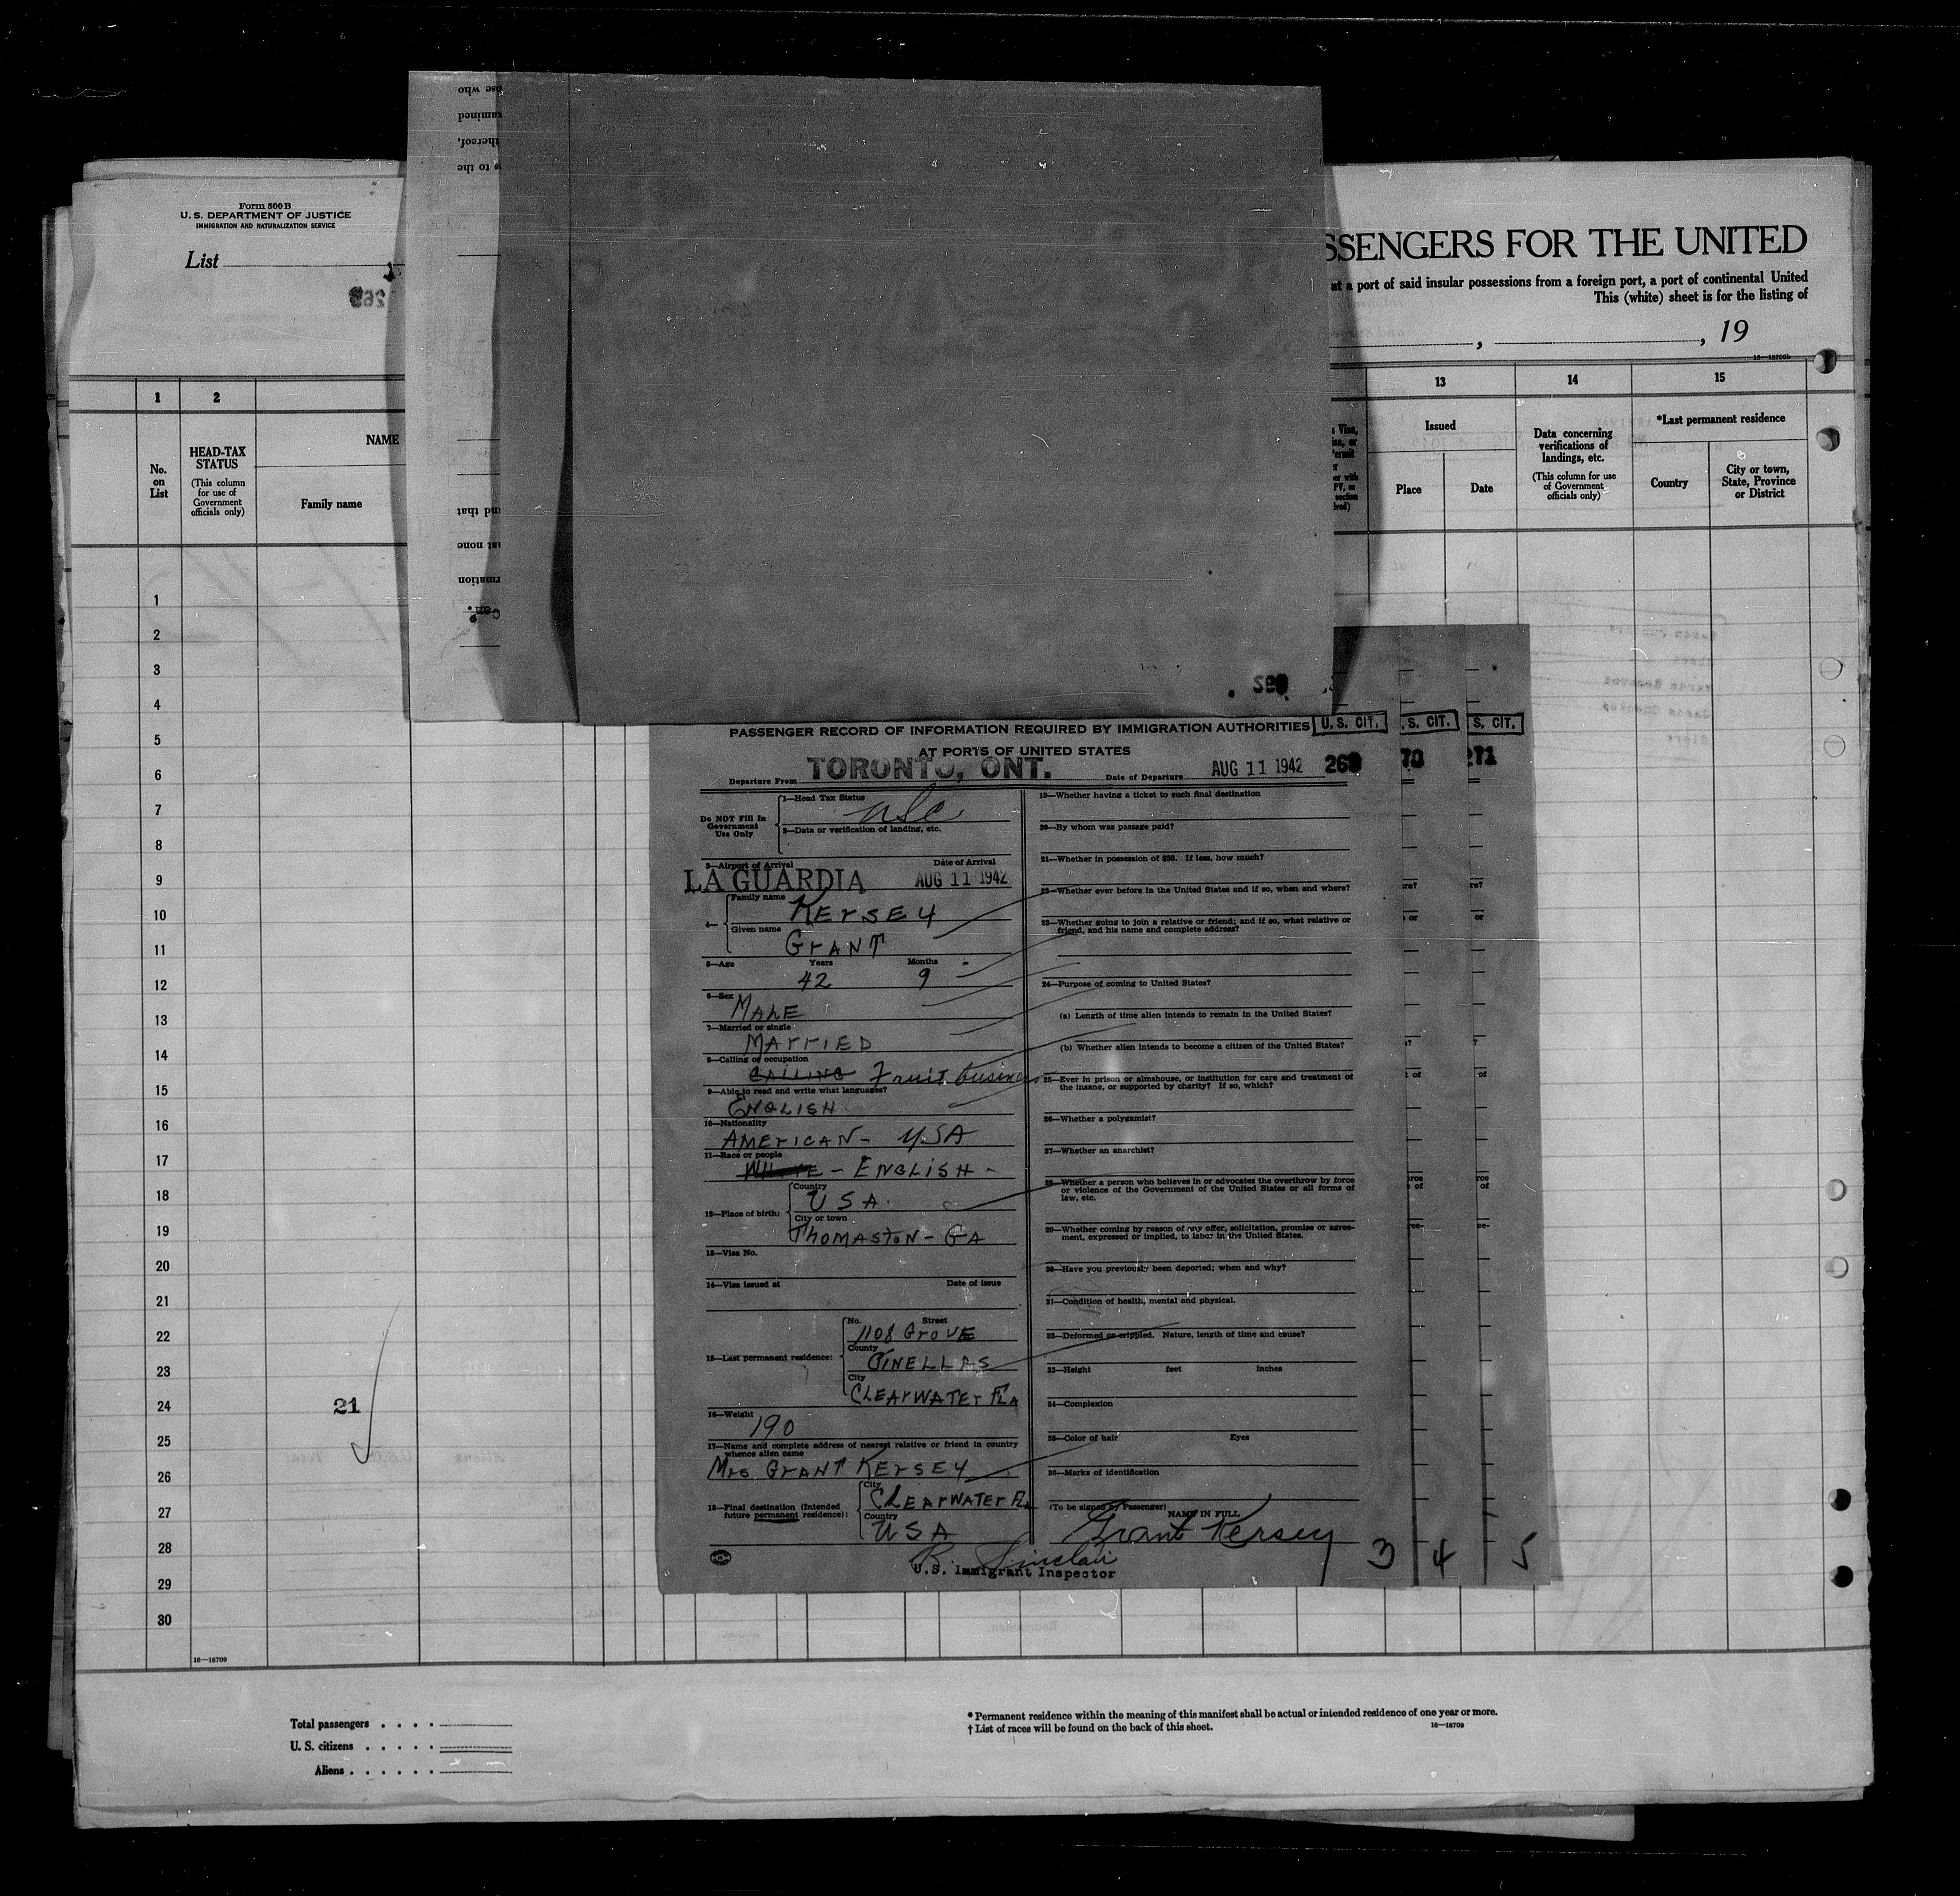 Form 500 B
U. S. DEPARTMENT OF JUSTICE
IMMIGRATION AND NATURALIZATION SERVICE
List
ose who
amined
thereof,
s to the
nd that
at none
rmation
Can.
SSENGERS FOR THE UNITED
at a port of said insular possessions from a foreign port, a port of continental United
This (white) sheet is for the listing of
, , 19
16—18709b
1 2 13 14 15
No. on List
HEAD-TAX STATUS
(This column for use of Government officials only)
NAME
Family name
Issued
Place Date
Data concerning verifications of landings, etc.
(This column for use of Government officials only)
*Last permanent residence
Country
City or town, State, Province or District
1
2
3
4
5
6
7
8
9
10
11
12
13
14
15
16
17
18
19
20
21
22
23
24
25
26
27
28
29
30
21
16—18709
PASSENGER RECORD OF INFORMATION REQUIRED BY IMMIGRATION AUTHORITIES
AT PORTS OF UNITED STATES
U. S. CIT. . S. CIT. S. CIT.
Departure From TORONTO, ONT. Date of Departure AUG 11 1942 269 70 271
Do NOT Fill In Government Use Only
1—Head Tax Status usc
2—Data or verification of landing, etc.
3—Airport of Arrival Date of Arrival
LA GUARDIA AUG 11 1942
4— Family name KErSEY
Given name GrANT
5—Age Years 42 Months 9
6—Sex MALE
7—Married or single
MArrIED
8—Calling or occupation
CALLING Fruit business
9—Able to read and write what languages?
ENGLISH
10—Nationality
AMErICAN - USA
11—Race or people
WHITE - ENGLISH -
12—Place of birth: Country USA.
City or town THOMASTON - GA
13—Visa No.
14—Visa issued at Date of issue
15—Last permanent residence: No. Street
1108 GroVE
County PINELLAS
City CLEArWATEr FLA
16—Weight 190
17—Name and complete address of nearest relative or friend in country
whence alien came
Mrs GrANT KErSEY
18—Final destination (Intended
future permanent residence):
City CLEArWATEr FLA
Country USA
R. Sinclair
U.S. Immigrant Inspector
19—Whether having a ticket to such final destination
20—By whom was passage paid?
21—Whether in possession of $50. If less, how much?
22—Whether ever before in the United States and if so, when and where?
23—Whether going to join a relative or friend; and if so, what relative or
friend, and his name and complete address?
24—Purpose of coming to United States?
(a) Length of time alien intends to remain in the United States?
(b) Whether alien intends to become a citizen of the United States?
25—Ever in prison or almshouse, or institution for care and treatment of
the insane, or supported by charity? If so, which?
26—Whether a polygamist?
27—Whether an anarchist?
28—Whether a person who believes in or advocates the overthrow by force
or violence of the Government of the United States or all forms of
law, etc.
29—Whether coming by reason of any offer, solicitation, promise or agree-
ment, expressed or implied, to labor in the United States.
30—Have you previously been deported; when and why?
31—Condition of health, mental and physical.
32—Deformed or crippled. Nature, length of time and cause?
33—Height feet inches
34—Complexion
35—Color of hair Eyes
36—Marks of identification
(To be signed by Passenger)
NAME IN FULL
Grant Kersey
3 4 5
Total passengers
U. S. citizens
Aliens
* Permanent residence within the meaning of this manifest shall be actual or intended residence of one year or more.
† List of races will be found on the back of this sheet.
16—18709